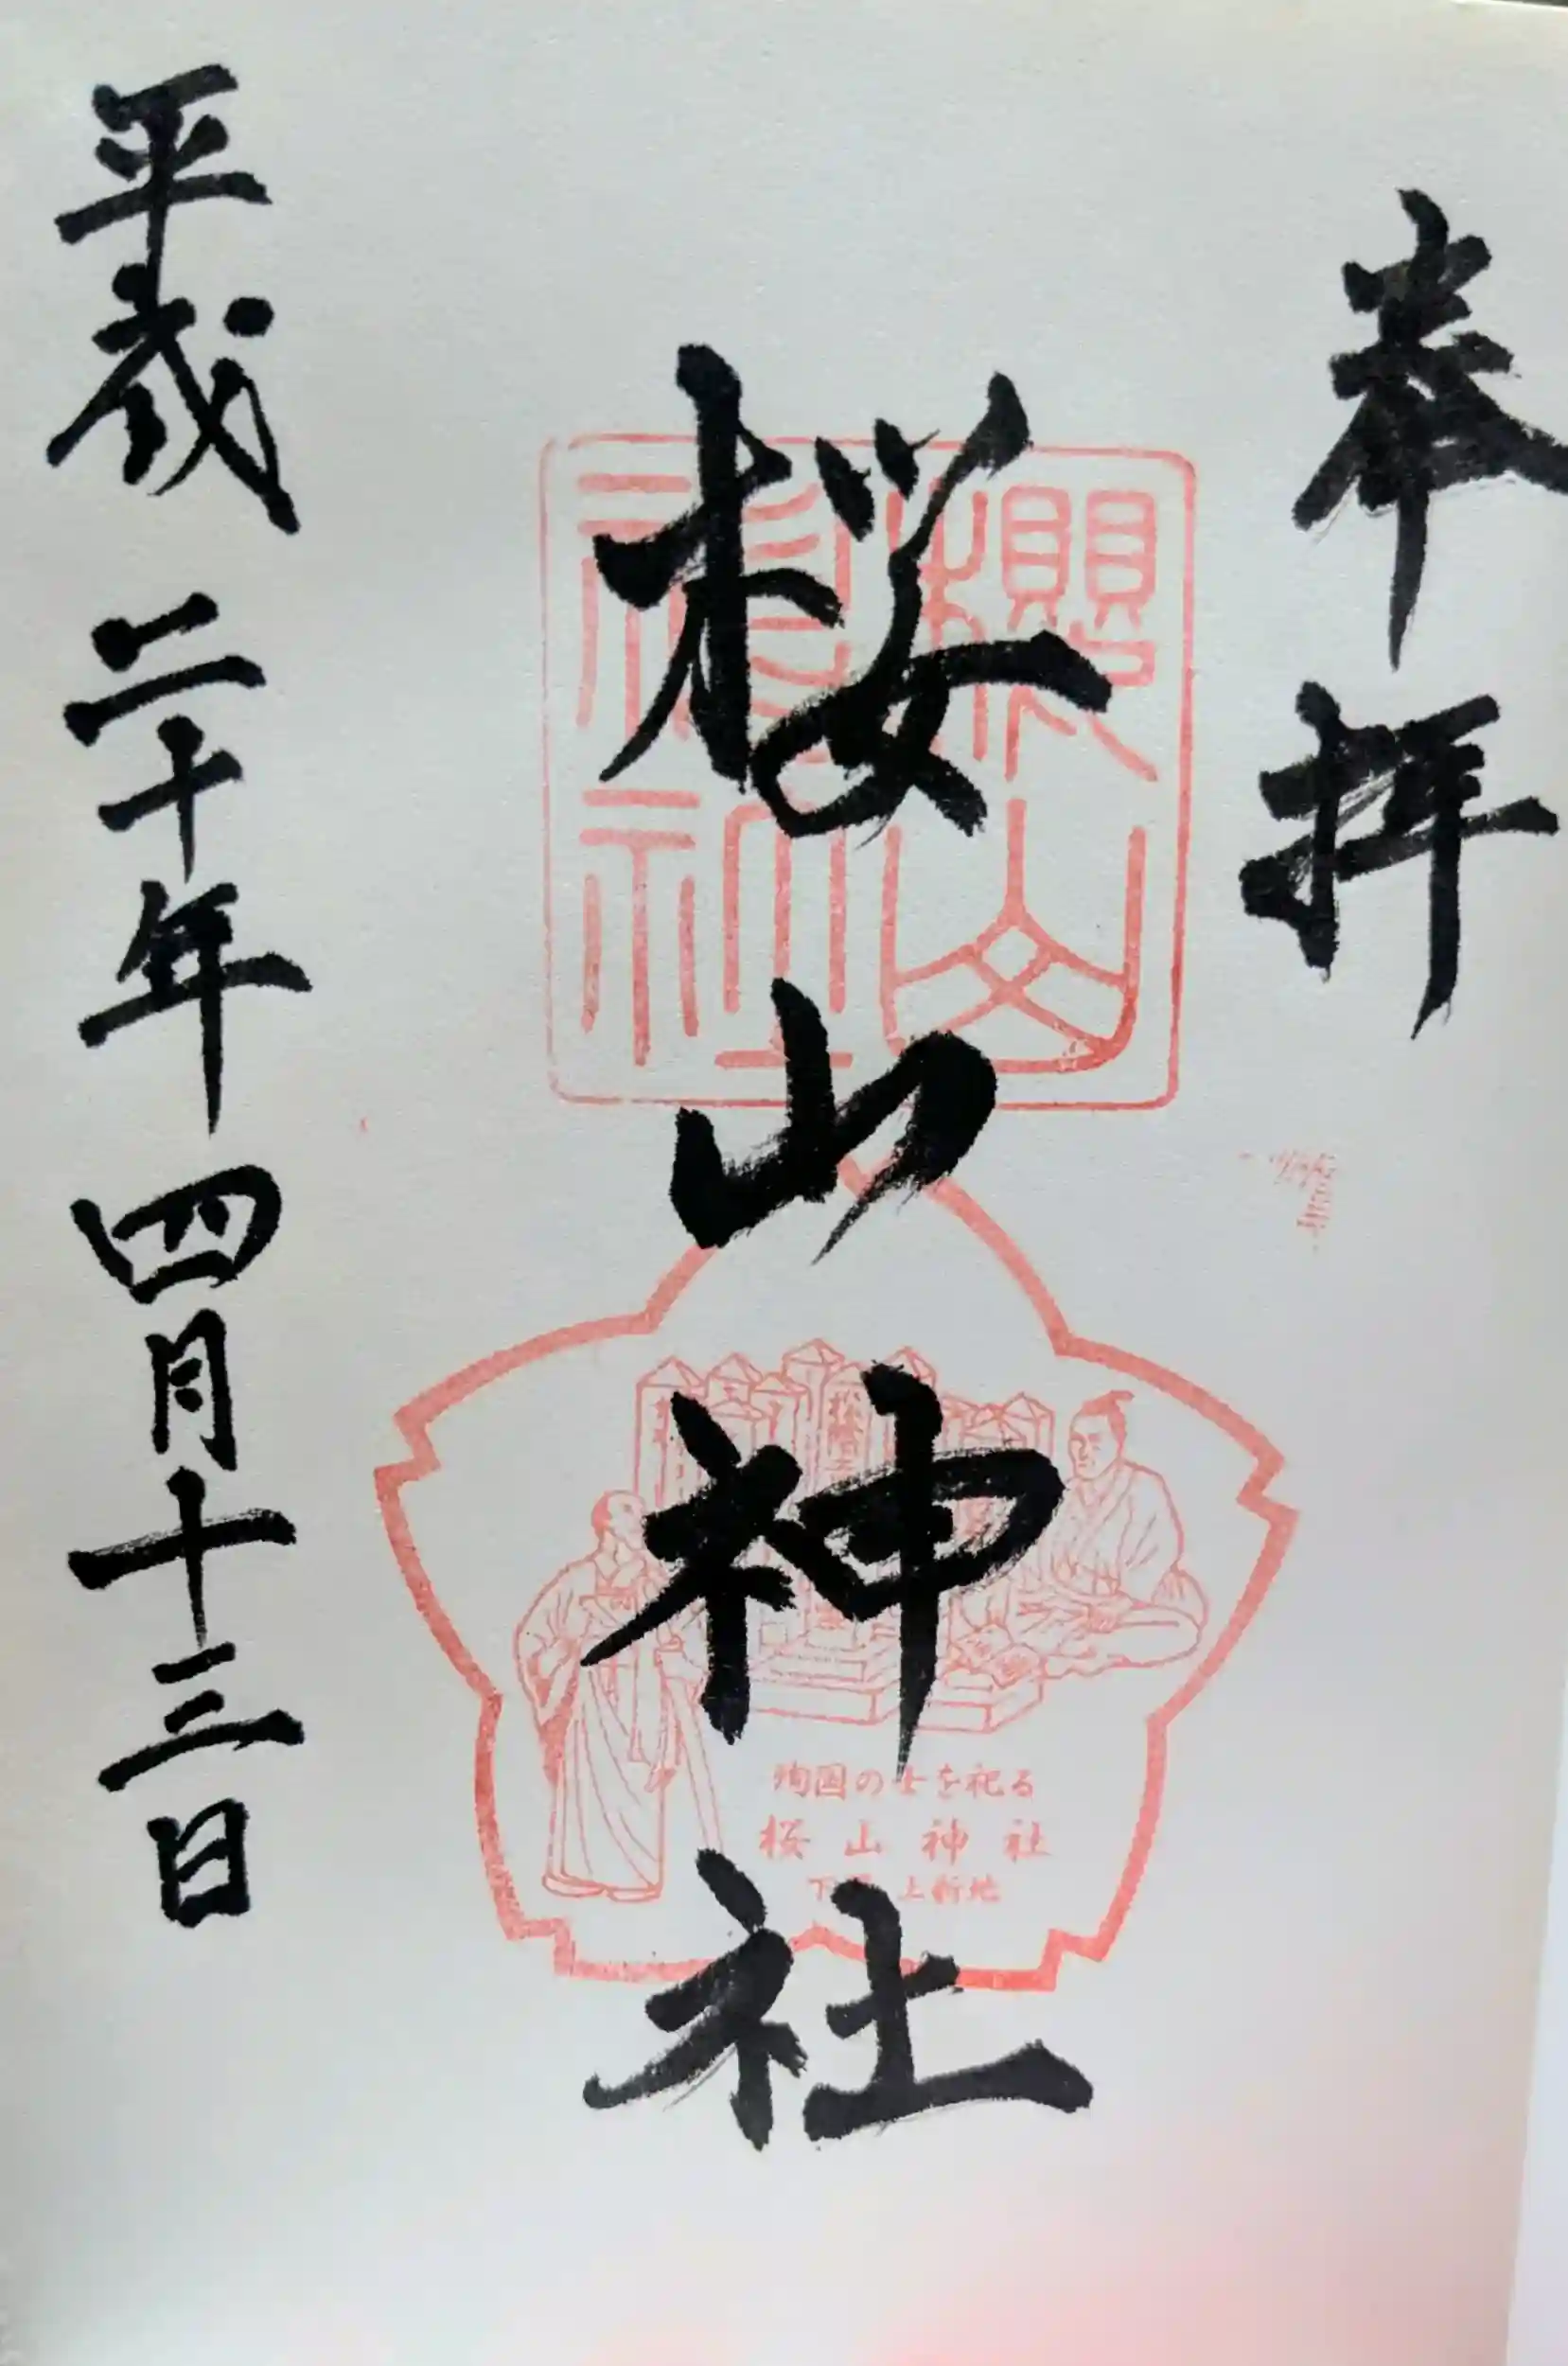 奉拝
桜山神社
平成二十年四月十三日
櫻山
神社
殉国の士を祀る
桜山神社
上新地